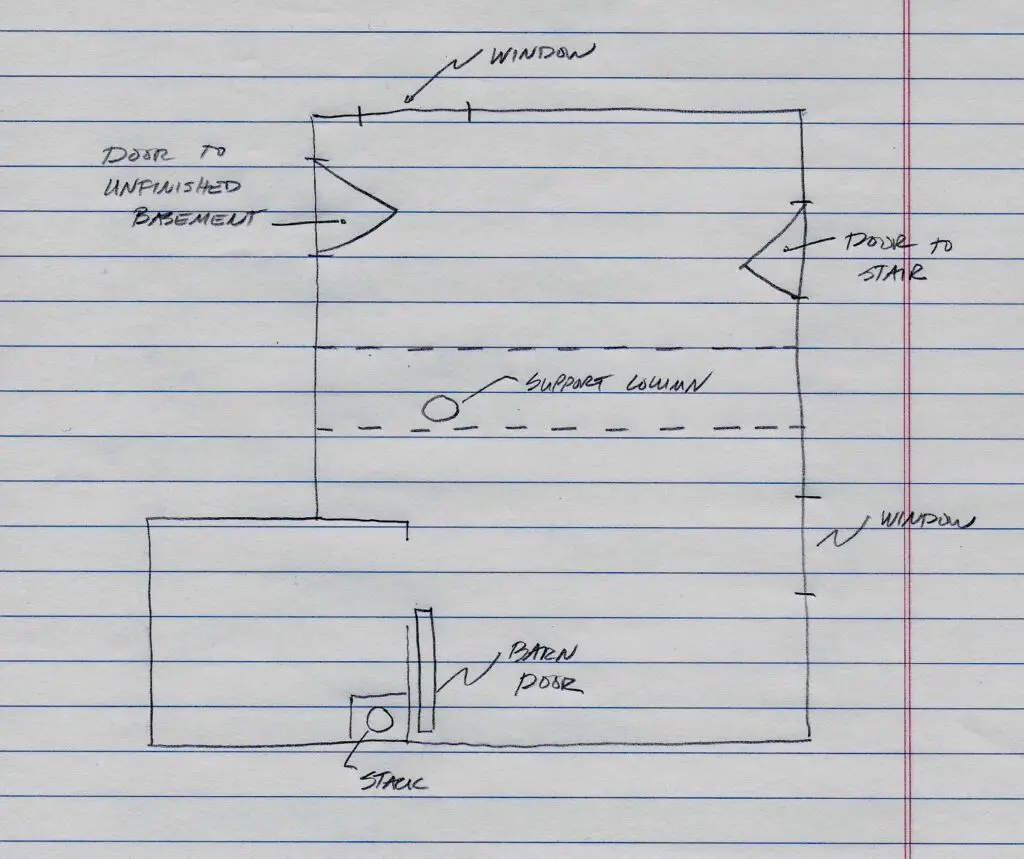 WINDOW
DOOR TO
UNFINISHED
BASEMENT
DOOR TO
STAIR
SUPPORT COLUMN
WINDOW
BARN
DOOR
STACK